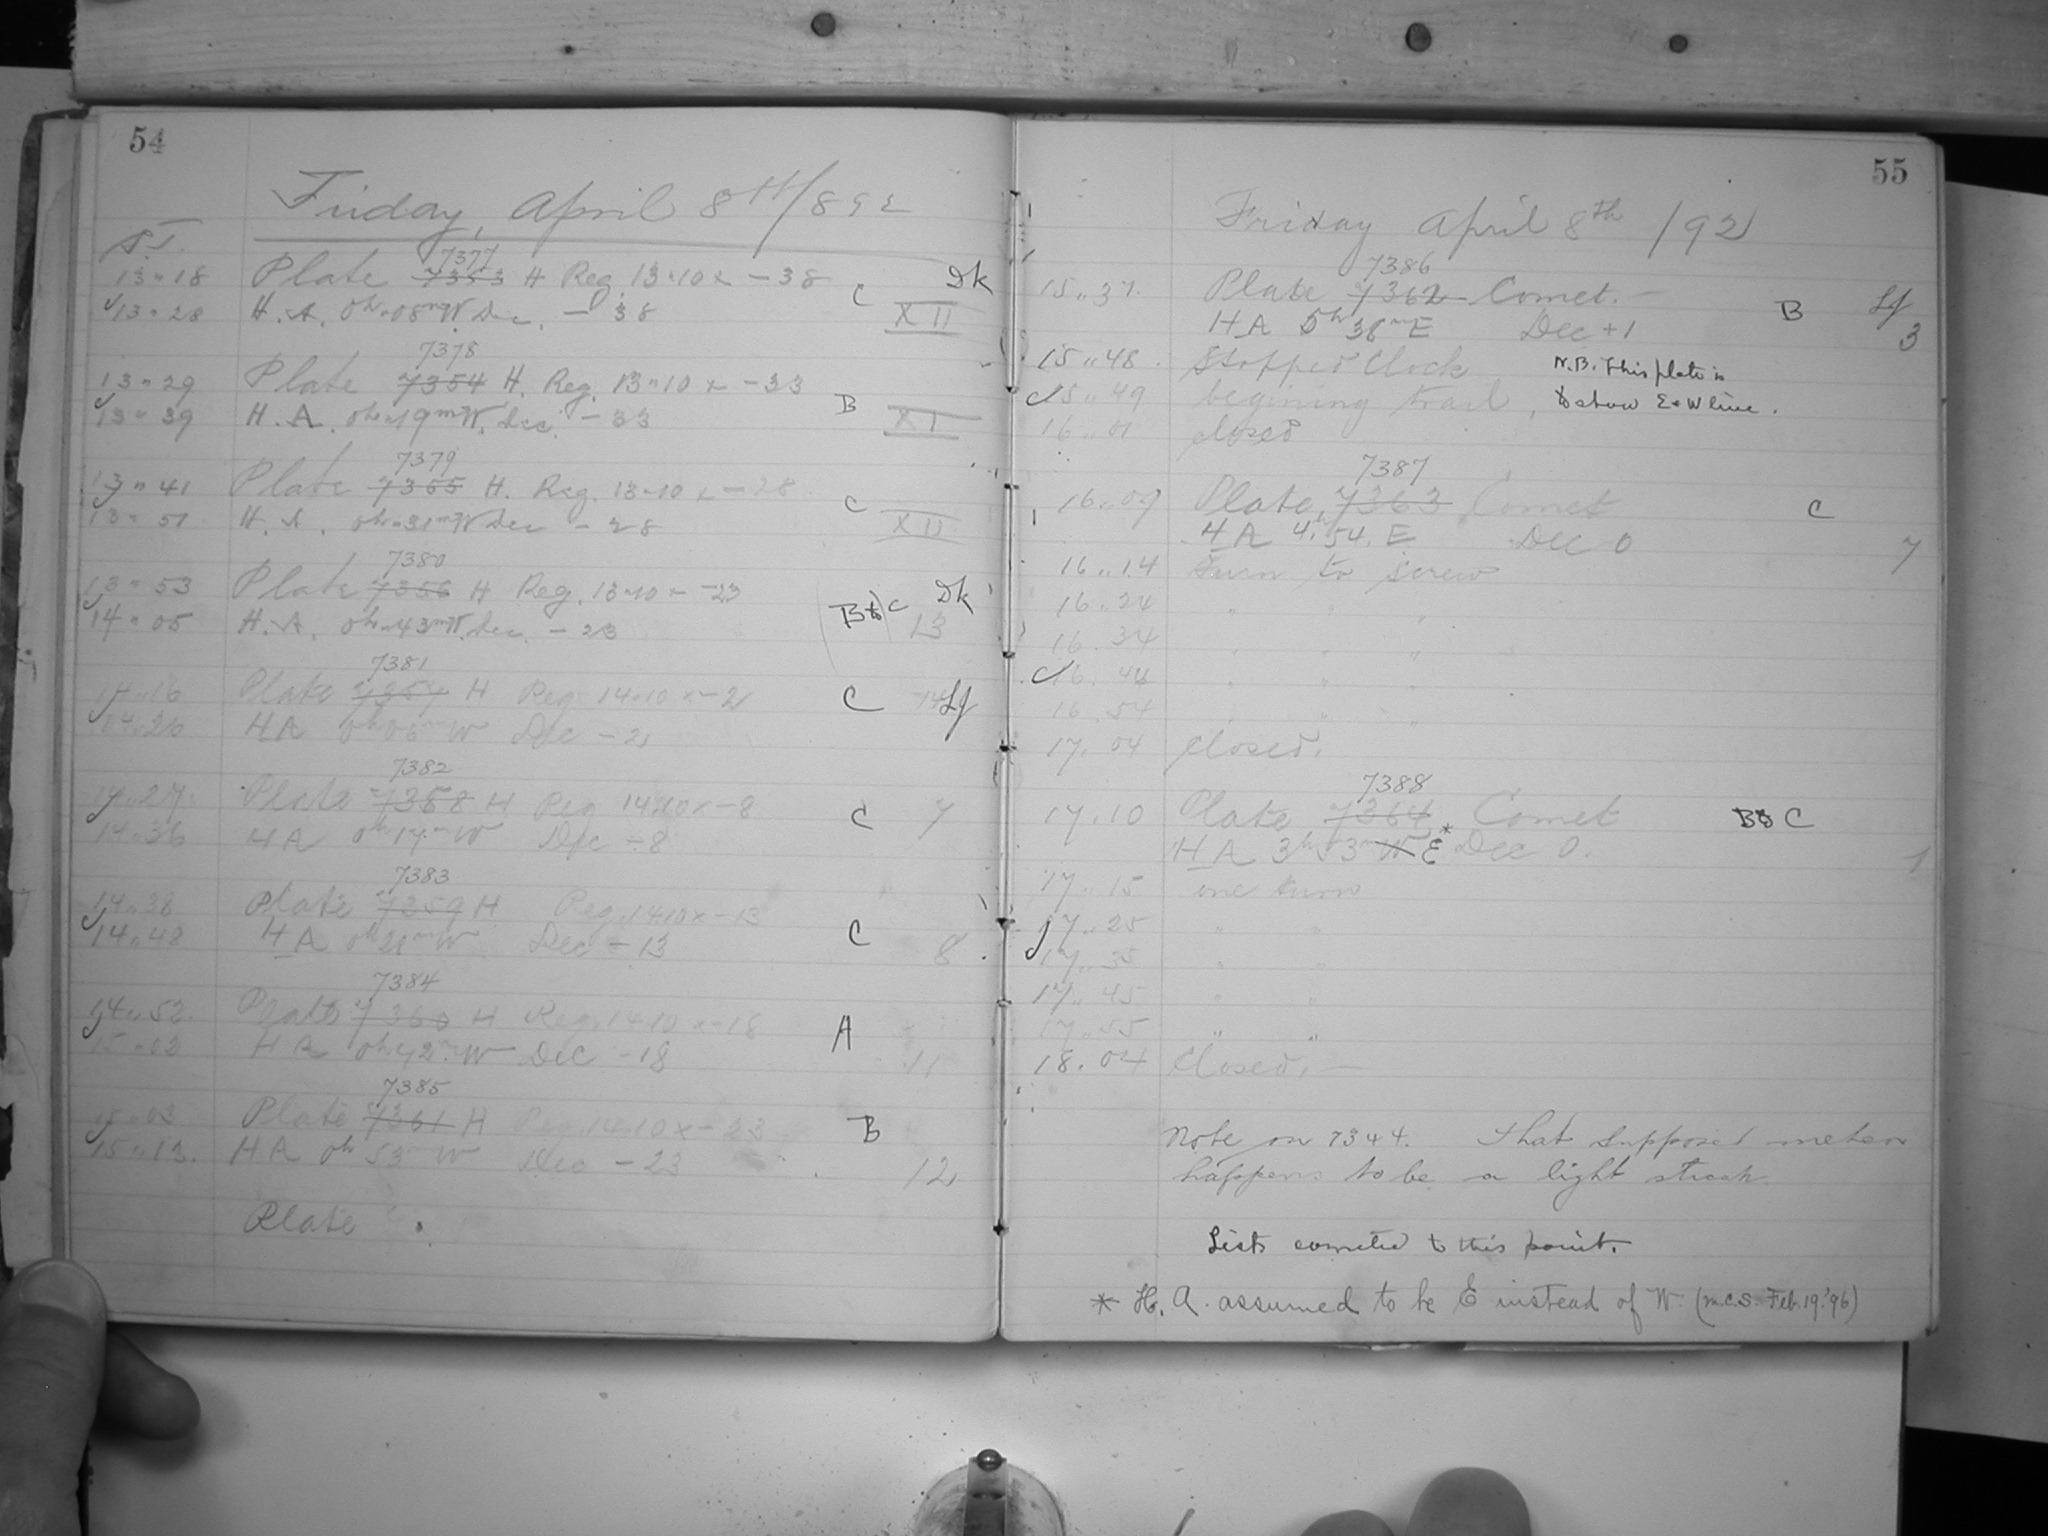 54
Friday, April 8th/892
S.T.
7377
13 " 18 Plate 7353 H Reg. 13"10 x -38 C Dk
13 " 28 H. A. 0h "08m W. Dec. -38 XII
7378
13 " 29 Plate 7354 H. Reg. 13"10 x -33 B
13 " 39 H. A. 0h "19m W. Dec. -33 XI
7379
13 " 41 Plate 7355 H. Reg. 13"10 x -28 C
13 " 51 H. A. 0h "31m W Dec -28 XII
7380
13 " 53 Plate 7356 H Reg. 13"10 x -23 B to C Dk
14 " 05 H. A. 0h "43m W. Dec. -23 13
7381
14 " 16 Plate 7357 H Reg 14"10 x -2 C 14 Lf
14 " 26 HA 0h 06m W Dec -2
7382
14 " 27 Plate 7358 H Reg 14"10 x -8 C 7
14 " 36 HA 0h 17m W Dec -8
7383
14 " 38 Plate 7359 H Reg. 14 10 x -13 C
14 " 48 HA 0h 28m W Dec -13 8
7384
14 " 52 Plate 7360 H Reg. 14 10 x -18 A
15 " 02 HA 0h 42m W Dec -18 11
7385
15 " 03 Plate 7361 H Reg 14 10 x -23 B
15 " 13. HA 0h 53m W Dec -23 12
Plate
55
Friday April 8th /92
7386
15 " 37. Plate 7362 Comet. — B Lf
HA 5h 38m E Dec +1 3
15 " 48. Stopped Clock N.B. This plate is
15 " 49 begining trail, to show E & W line.
16 " 01 closed
7387
16 " 09 Plate 7363 Comet C
HA 4h 54. E Dec 0 7
16 " 14 Turn to screw
16 . 24 " " "
16 . 34 " " "
16 . 44 " " "
16 . 54 " " "
17 . 04 Closed.
7388
17 . 10 Plate 7364 Comet B to C
HA 3h 53m W E* Dec 0. 1
17 " 15 one turn
17 " 25 " "
17 " 35 " "
17 " 45 " "
17 " 55 " "
18 . 04 Closed. —
Note on 7344. That supposed meteor
happens to be a light streak.
Lists corrected to this point.
* H. A. assumed to be E instead of W. (m.c.s. Feb. 19. '96)